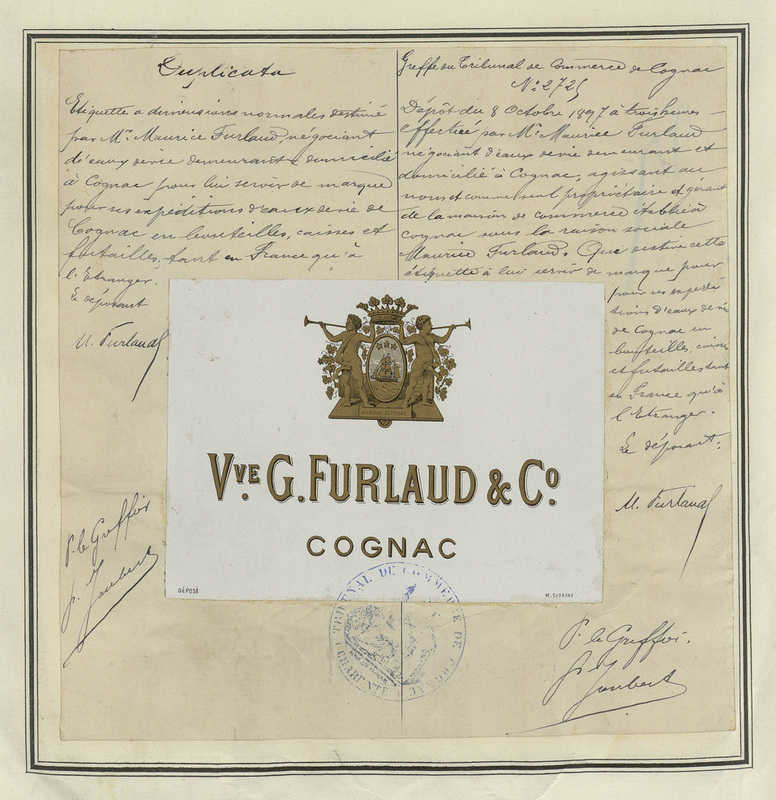 Duplicata
Etiquette a dimensions normales destiné
par Mr. Maurice Furlaud, négociant
d'eaux de vie demeurant & domicilié
à Cognac pour lui servir de marque
pour ses expéditions d'eaux de vie de
Cognac en bouteilles, caisses et
futailles, tant en France qu'à
l'Etranger.
Le déposant
M. Furlaud
P. le Greffier
Joubert
Greffe du Tribunal de Commerce de Cognac
No: 2725
Dépôt du 8 Octobre 1897 à trois heures
effectué par Mr. Maurice Furlaud
négociant d'eaux de vie demeurant et
domicilié à Cognac, agissant au
nom et comme seul propriétaire et gérant
de la maison de commerce établie à
Cognac sous la raison sociale
Maurice Furlaud. Que destine cette
étiquette à lui servir de marque pour
pour ses expédi-
tions d'eaux de vie
de Cognac en
bouteilles, caisses
et futailles tant
en France qu'à
l'Etranger.
Le déposant:
M. Furlaud
P. le Greffier.
Joubert
MARQUE DÉPOSÉE
VVE G. FURLAUD & CO
COGNAC
DÉPOSÉ
TRIBUNAL DE COMMERCE DE COGNAC
CHARENTE